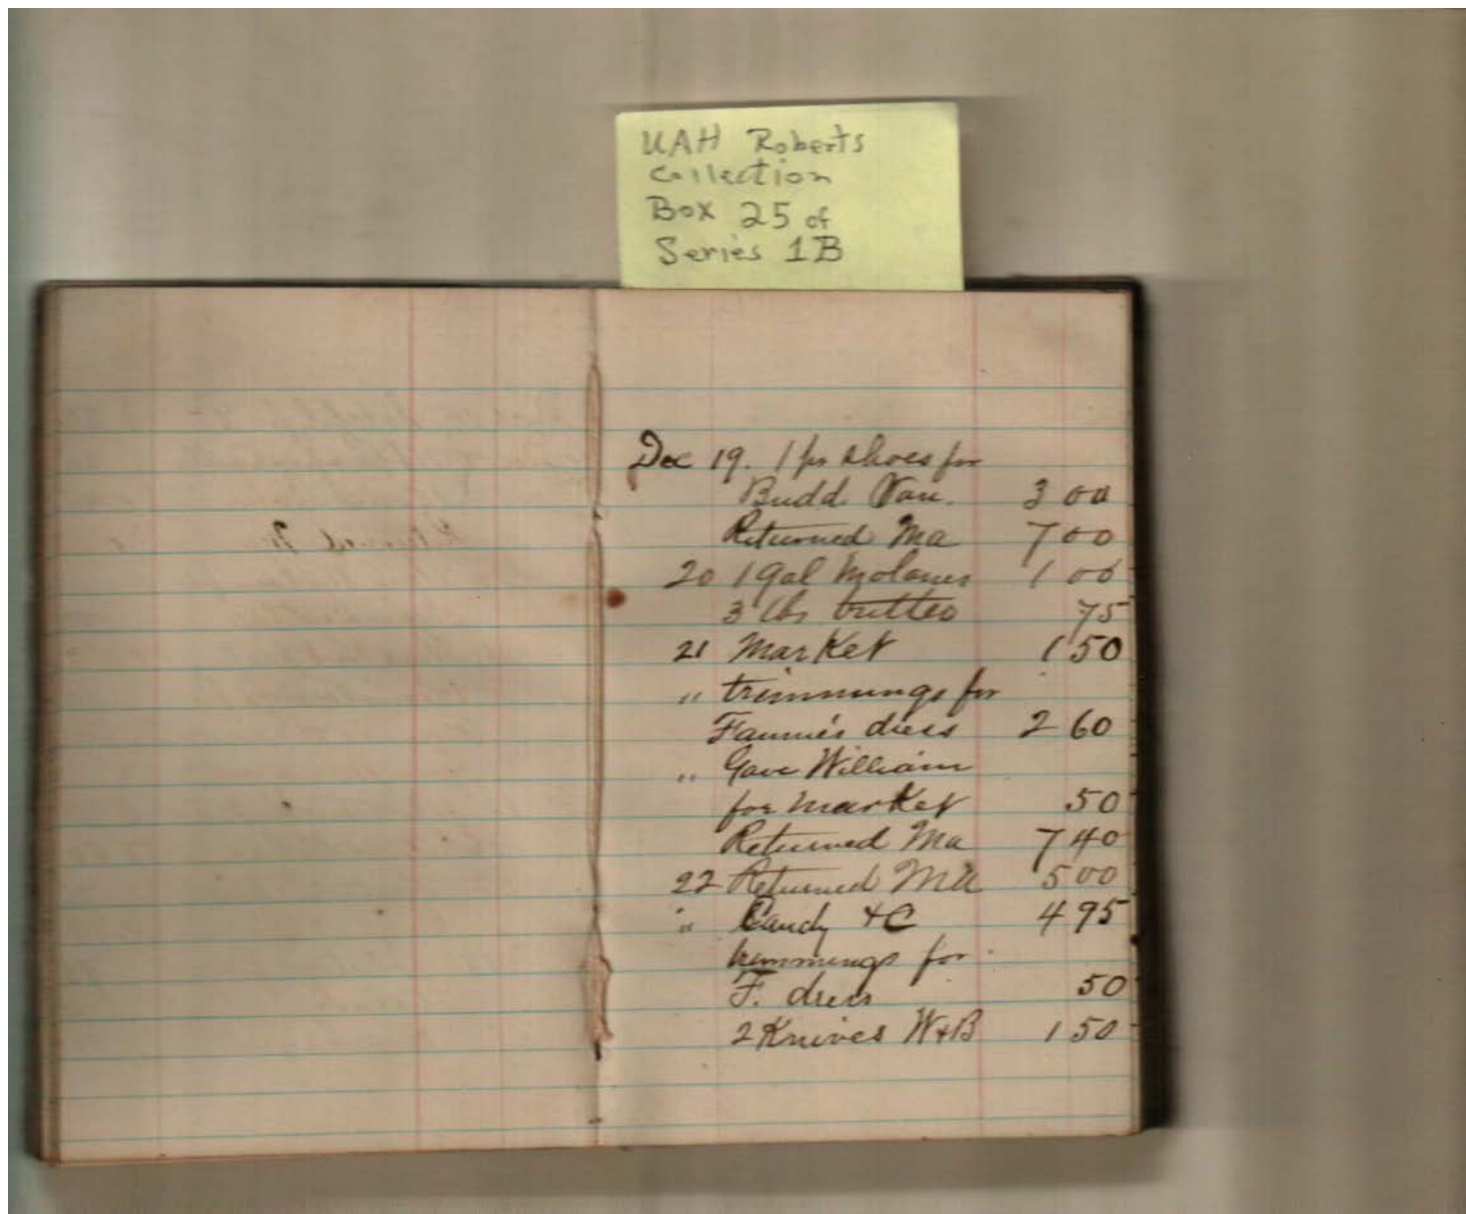 UAH Roberts
Collection
Box 25 of
Series 1B
Dec 19. 1 pr shoes for
Budd Van. 3 00
Returned Ma 7 00
20 1 gal Molasses 1 00
3 lbs butter 75
21 Market 1 50
" trimmings for
Fannie's dress 2 60
" Gave William
for Market 50
Returned Ma 7 40
22 Returned Ma 5 00
" Candy &C 4 95
trimmings for
F. dress 50
2 Knives W+B 1 50